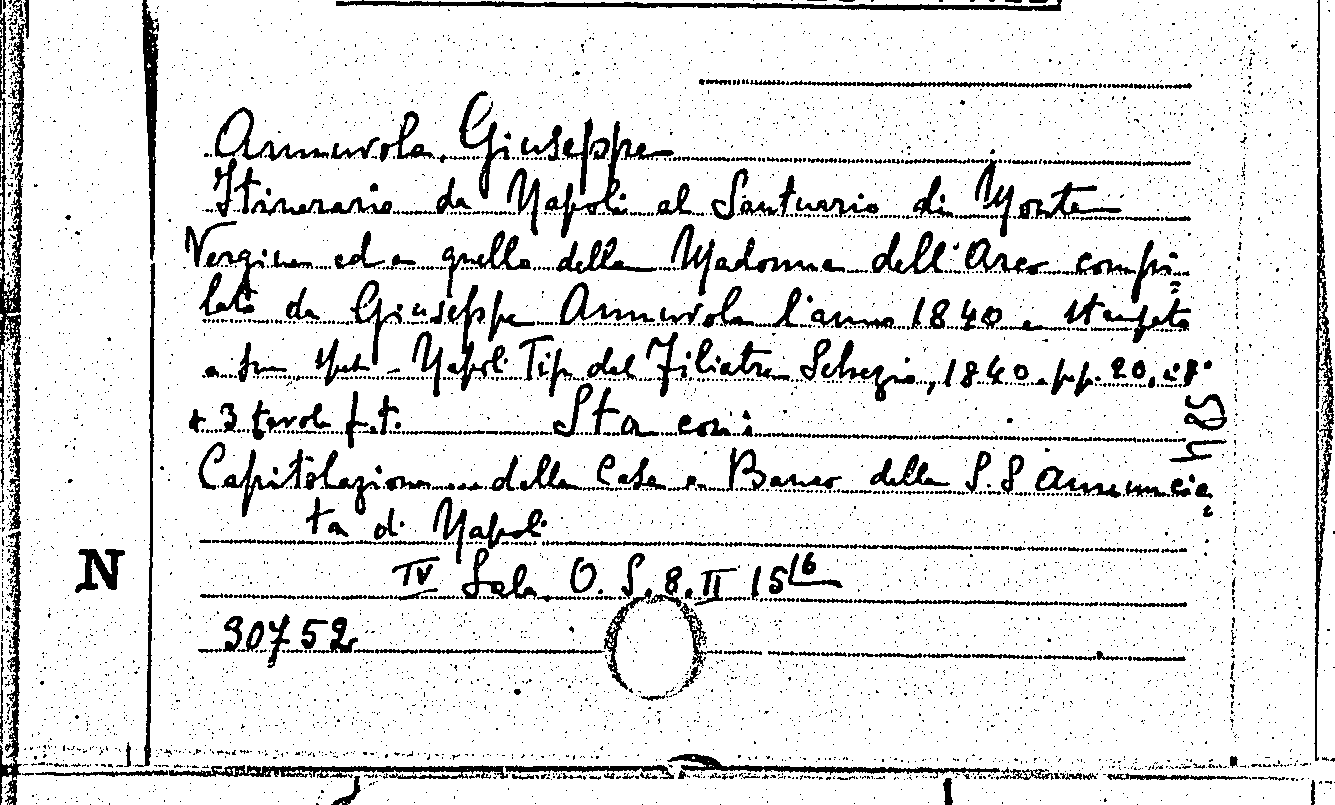 Ammirola, Giuseppe
Itinerario da Napoli al Santuario di Monte
Vergine ed a quello della Madonna dell'Arco compi=
lato da Giuseppe Ammirola l'anno 1840 e stampato
a sue spese - Napoli Tip. del Filiatre Sebezio, 1840. pp. 20, in 8°
+ 3 tavole f.t. Sta con:
Capitolazione ... della Casa e Banco della S.S Annuncia=
ta di Napoli
IV Sala. O. S. 8. II 15 16
30752
N